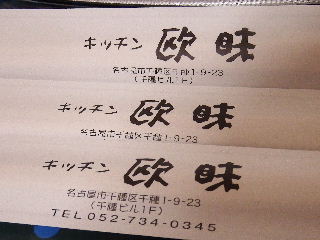 キッチン 欧味
名古屋市千種区千種1-9-23
(千種ビル1F)
キッチン 欧味
名古屋市千種区千種1-9-23
キッチン 欧味
名古屋市千種区千種1-9-23
(千種ビル1F)
TEL052-734-0345